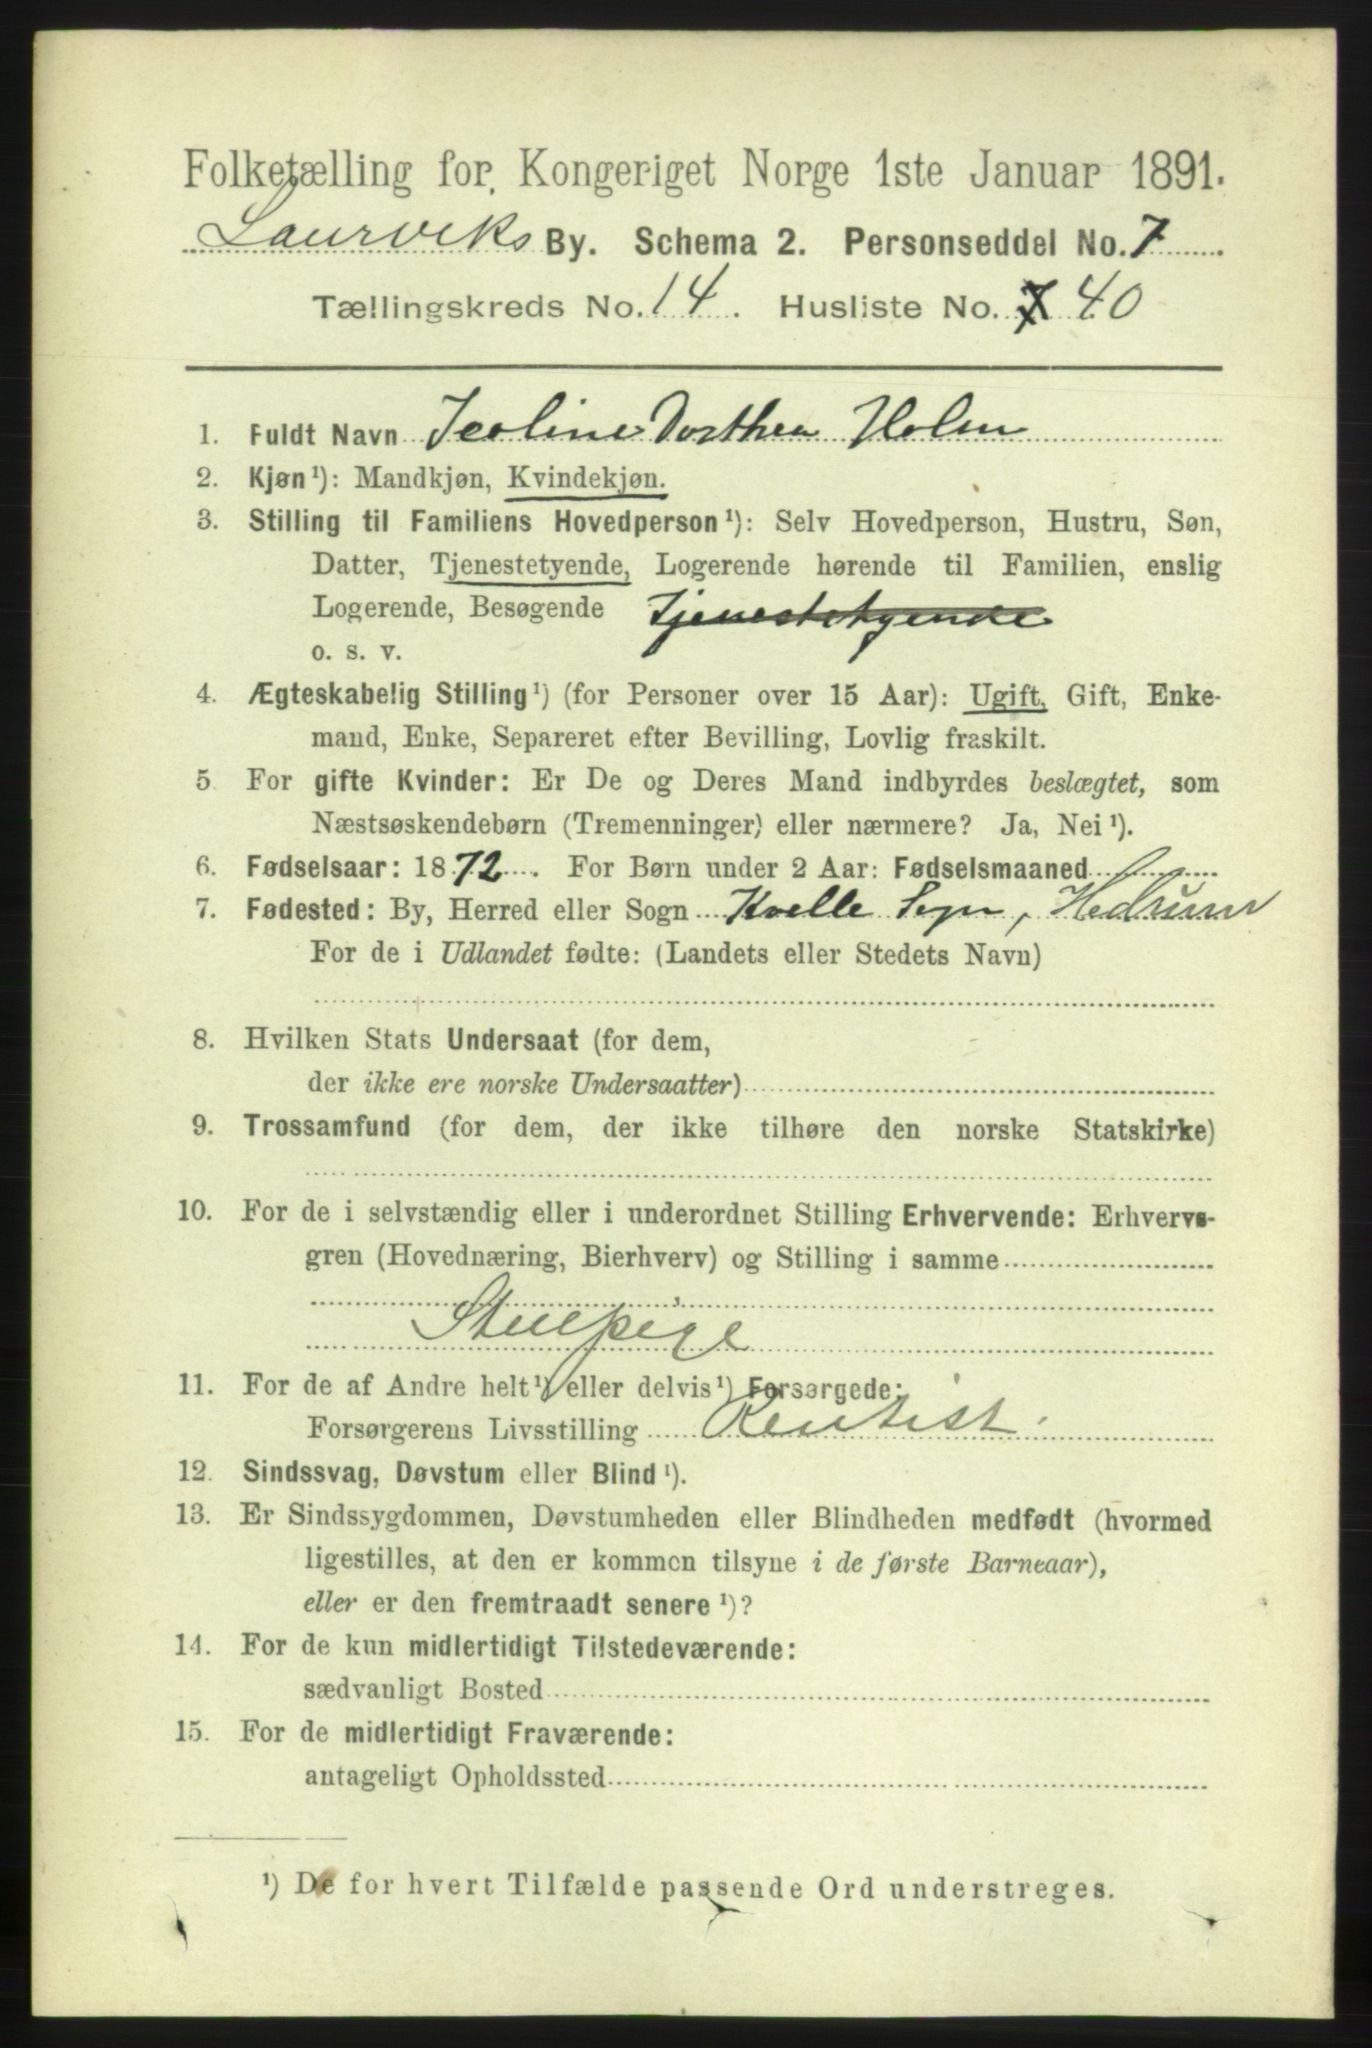 Folketælling for Kongeriget Norge 1ste Januar 1891.
Laurviks By. Schema 2. Personseddel No. 7
Tællingskreds No. 14. Husliste No. 7 40
1. Fuldt Navn Jeoline Dorthea Holm
2. Kjøn¹): Mandkjøn, Kvindekjøn.
3. Stilling til Familiens Hovedperson¹): Selv Hovedperson, Hustru, Søn,
Datter, Tjenestetyende, Logerende hørende til Familien, enslig
Logerende, Besøgende Tjenestetyende
o. s. v.
4. Ægteskabelig Stilling¹) (for Personer over 15 Aar): Ugift, Gift, Enke-
mand, Enke, Separeret efter Bevilling, Lovlig fraskilt.
5. For gifte Kvinder: Er De og Deres Mand indbyrdes beslægtet, som
Næstsøskendebørn (Tremenninger) eller nærmere? Ja, Nei¹).
6. Fødselsaar: 1872. For Børn under 2 Aar: Fødselsmaaned
7. Fødested: By, Herred eller Sogn Kvelle Sogn, Hedrum
For de i Udlandet fødte: (Landets eller Stedets Navn)
8. Hvilken Stats Undersaat (for dem,
der ikke ere norske Undersaatter)
9. Trossamfund (for dem, der ikke tilhøre den norske Statskirke)
10. For de i selvstændig eller i underordnet Stilling Erhvervende: Erhvervs-
gren (Hovednæring, Bierhverv) og Stilling i samme
Stuepige
11. For de af Andre helt¹) eller delvis¹) Forsørgede:
Forsørgerens Livsstilling Rentist.
12. Sindssvag, Døvstum eller Blind¹).
13. Er Sindssygdommen, Døvstumheden eller Blindheden medfødt (hvormed
ligestilles, at den er kommen tilsyne i de første Barneaar),
eller er den fremtraadt senere¹)?
14. For de kun midlertidigt Tilstedeværende:
sædvanligt Bosted
15. For de midlertidigt Fraværende:
antageligt Opholdssted
¹) De for hvert Tilfælde passende Ord understreges.